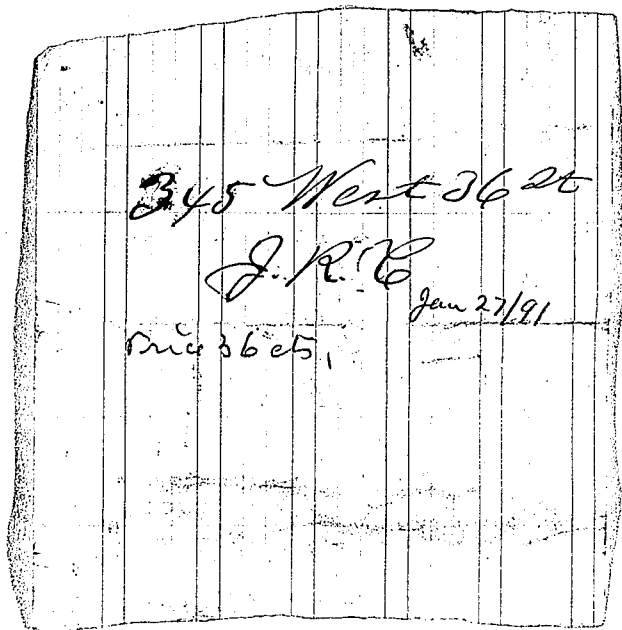 345 West 36 St
J. R. C
Jan 27/91
Price 36 cts,